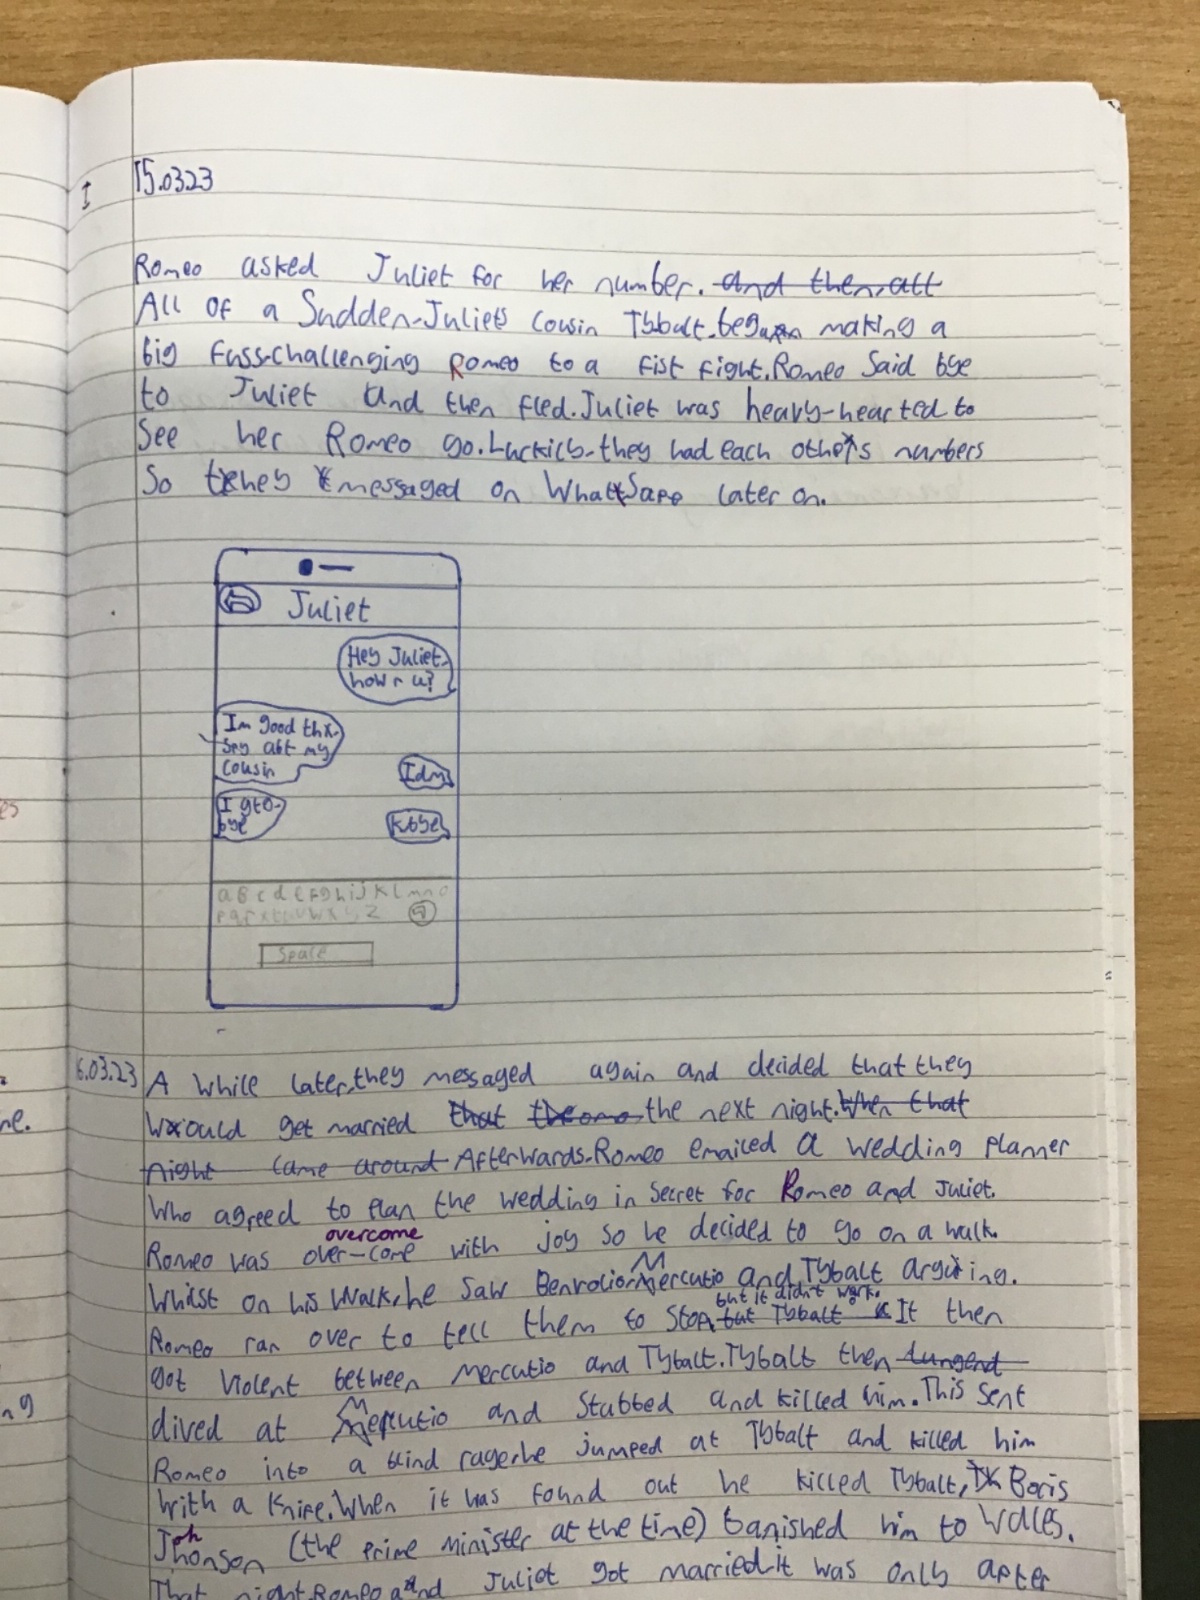 I
15.03.23
Romeo asked Juliet for her number. and then, all
All of a Sudden, Juliets cousin Tybalt, began making a
big fuss-challenging Romeo to a fist fight. Romeo Said bye
to Juliet and then fled. Juliet was heavy-hearted to
See her Romeo go. Luckily, they had each others numbers
So they messaged on WhatSapp later on.
Juliet
Hey Juliet,
how r u?
Im good thx.
Sry abt my
cousin
Idm
I gtg.
bye
K bye
a b c d e f g h i j k l m n o
p q r s t u v w x y z
Space
6.03.23 A while later, they messaged again and decided that they
would get married that the next night. When that
night came around Afterwards, Romeo emailed a wedding planner
who agreed to plan the wedding in secret for Romeo and Juliet.
overcome
Romeo was over-come with joy so he decided to go on a walk.
Whilst on his walk, he saw Benvolio, Mercutio and Tybalt arguing.
but it didn't work.
Romeo ran over to tell them to stop, but Tybalt It then
got violent between Mercutio and Tybalt. Tybalt then lungend
dived at Mercutio and Stabbed and killed him. This sent
Romeo into a blind rage, he jumped at Tybalt and killed him
with a knife. When it was found out he killed Tybalt, Boris
Jhonson (the prime minister at the time) banished him to Wales.
oh
That night, Romeo and Juliet got married, it was only after
es
ne.
ng